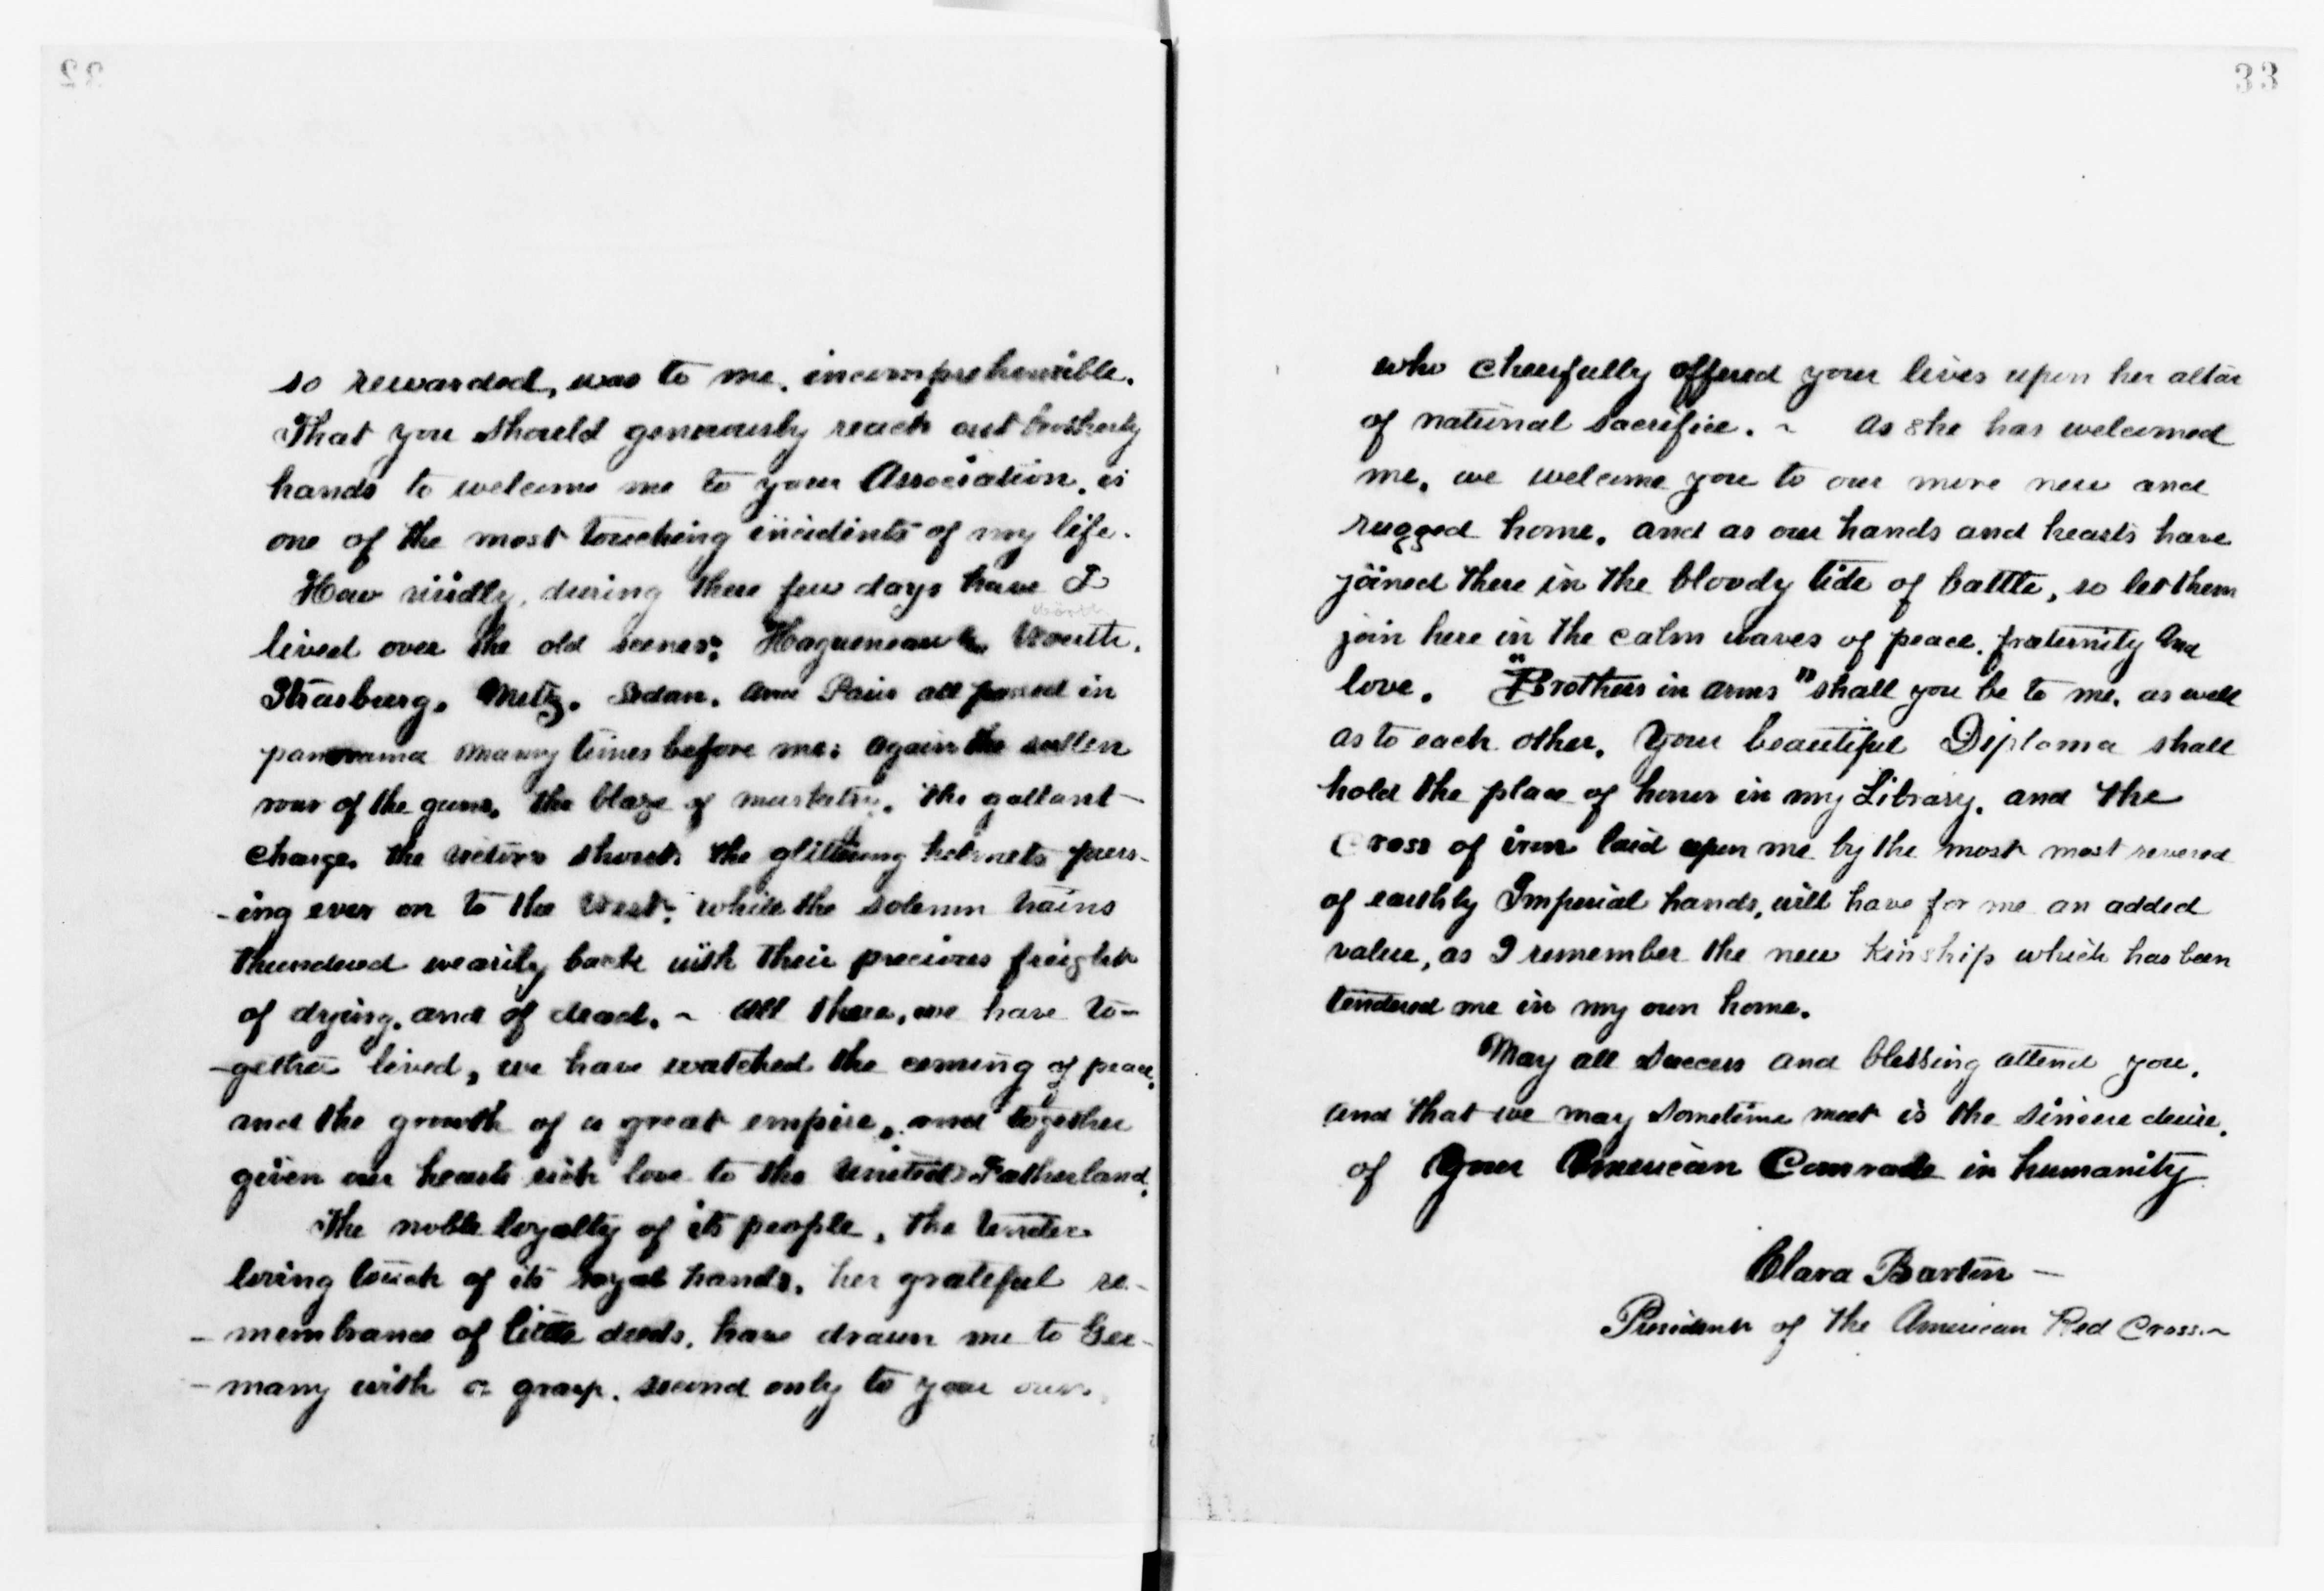 32
so rewarded, was to me, incomprehensible.
That you should generously reach out brotherly
hands to welcome me to your Association, is
one of the most touching incidents of my life.
How vividly, during these few days have I
lived over the old scenes; Hagueneau Wörth
Woerth,
Strasburg, Metz, Sedan, and Paris all passed in
panorama many times before me; again the sullen
roar of the guns, the blaze of musketry, the gallant
charge, the victors shout, the glittering helmets press-
-ing ever on to the West; while the solemn trains
thundered wearily back with their precious freight
of dying, and of dead. ~ All these, we have to-
-gether lived, we have watched the coming of peace,
and the growth of a great empire, and together
given our hearts rich love to the United Fatherland.
The noble loyalty of its people, the tender
loving touch of its royal hands, her grateful re-
-membrance of little deeds, have drawn me to Ger-
-many with a grasp, second only to your own,
33
who cheerfully offered your lives upon her altar
of national sacrifice. ~ As she has welcomed
me, we welcome you to our more new and
rugged home, and as our hands and hearts have
joined there in the bloody tide of battle, so let them
join here in the calm waves of peace, fraternity and
love. "Brothers in arms" shall you be to me, as well
as to each other. Your beautiful Diploma shall
hold the place of honor in my Library, and the
Cross of iron laid upon me by the most most revered
of earthly Imperial hands, will have for me an added
value, as I remember the new kinship which has been
tendered me in my own home.
May all success and blessing attend you,
and that we may sometime meet is the sincere desire,
of Your American Comrade in humanity
Clara Barton —
President of the American Red Cross. ~